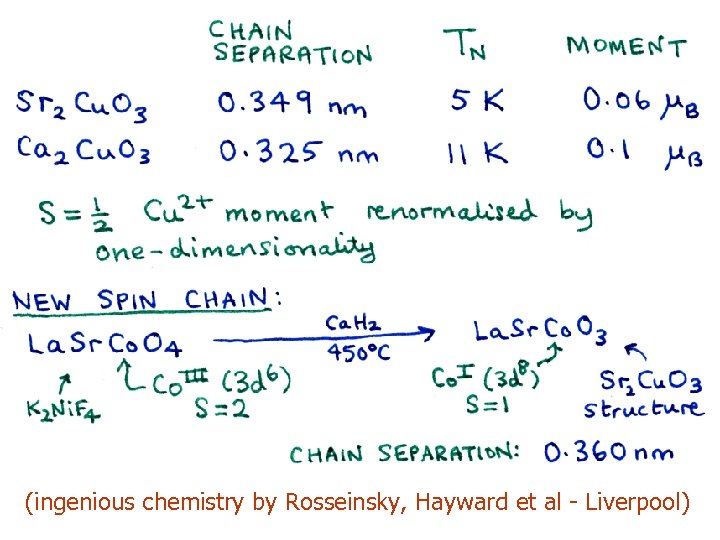 CHAIN SEPARATION TN MOMENT
Sr2CuO3 0.349 nm 5 K 0.06 μB
Ca2CuO3 0.325 nm 11 K 0.1 μB
S = 1/2 Cu2+ moment renormalised by
one-dimensionality
NEW SPIN CHAIN:
LaSrCoO4 CaH2 450°C LaSrCoO3
K2NiF4 CoIII (3d6) S=2 CoI (3d8) S=1 Sr2CuO3 structure
CHAIN SEPARATION: 0.360 nm
(ingenious chemistry by Rosseinsky, Hayward et al - Liverpool)